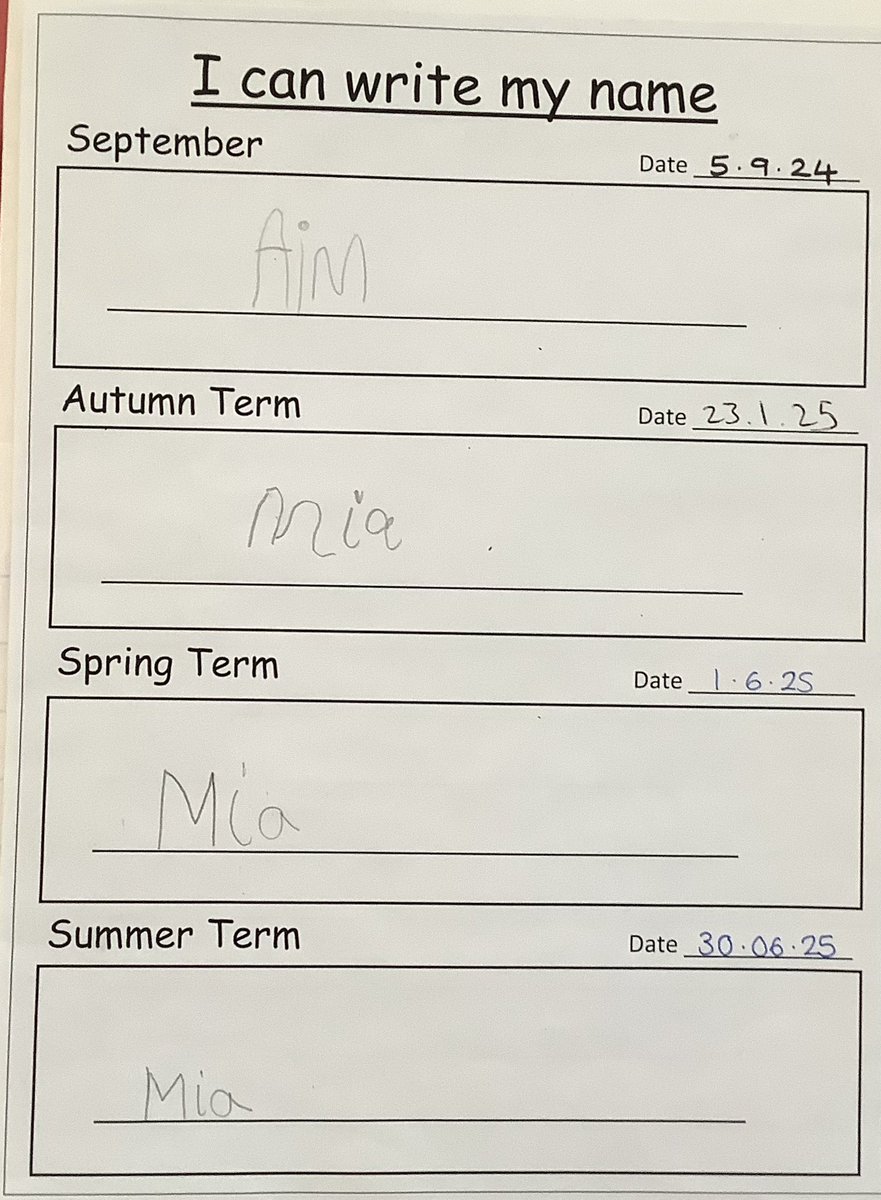 I can write my name
September
Date 5.9.24
AiM
Autumn Term
Date 23.1.25
Mia
Spring Term
Date 1.6.25
Mia
Summer Term
Date 30.06.25
Mia